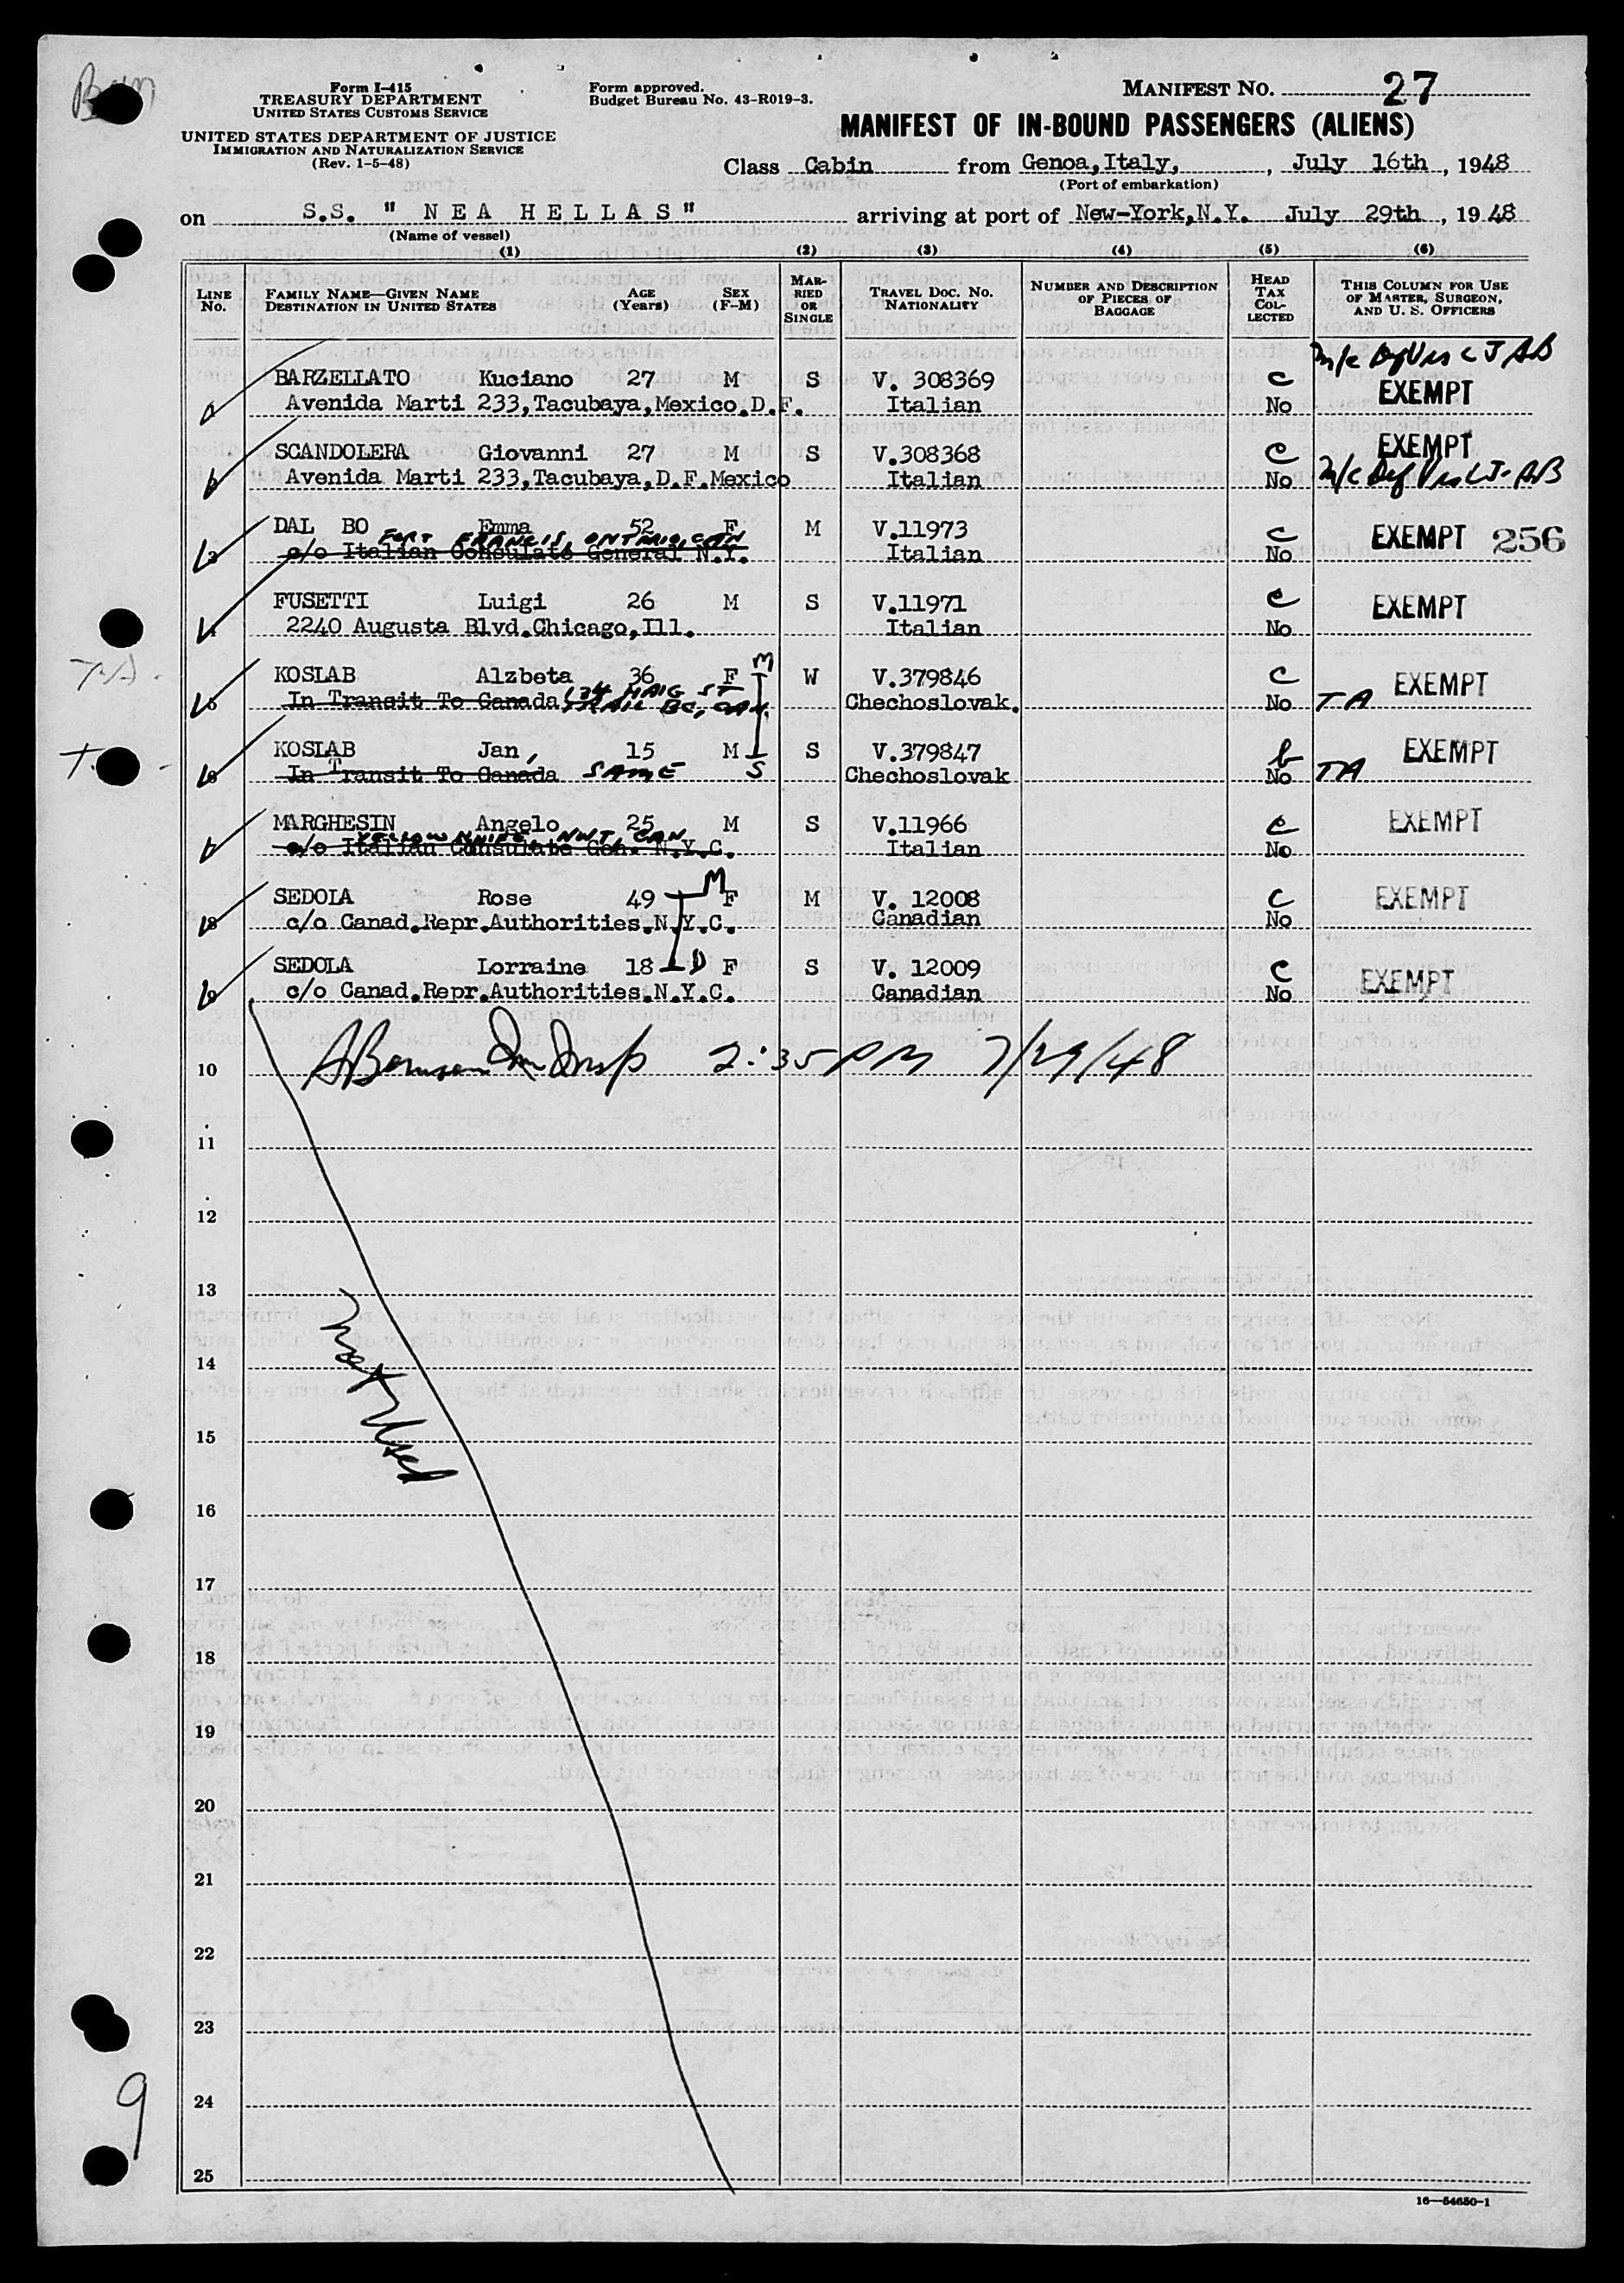 Form I-415
TREASURY DEPARTMENT
UNITED STATES CUSTOMS SERVICE
UNITED STATES DEPARTMENT OF JUSTICE
IMMIGRATION AND NATURALIZATION SERVICE
(Rev. 1-5-48)
Form approved.
Budget Bureau No. 43-R019-3.
MANIFEST NO. 27
MANIFEST OF IN-BOUND PASSENGERS (ALIENS)
Class Cabin from Genoa, Italy, , July 16th , 1948
(Port of embarkation)
on S.S. " NEA HELLAS" arriving at port of New-York, N.Y. July 29th , 1948
(Name of vessel)
(1) (2) (3) (4) (5) (6)
LINE No. FAMILY NAME—GIVEN NAME DESTINATION IN UNITED STATES AGE (Years) SEX (F-M) MARRIED OR SINGLE TRAVEL DOC. NO. NATIONALITY NUMBER AND DESCRIPTION OF PIECES OF BAGGAGE HEAD TAX COLLECTED THIS COLUMN FOR USE OF MASTER, SURGEON, AND U. S. OFFICERS
BARZELLATO Kuciano 27 M S V. 308369 C EXEMPT
Avenida Marti 233, Tacubaya, Mexico. D.F. Italian No
SCANDOLERA Giovanni 27 M S V.308368 C EXEMPT
Avenida Marti 233, Tacubaya, D.F. Mexico Italian No
3 DAL BO Emma 52 F M V.11973 C EXEMPT 256
FORT FRANCIS, ONTARIO, CAN
c/o Italian Consulate General N.Y. Italian No
FUSETTI Luigi 26 M S V.11971 C EXEMPT
2240 Augusta Blvd. Chicago, Ill. Italian No
5 KOSLAB Alzbeta 36 F M W V.379846 C EXEMPT
In Transit To Canada 134 HAIG ST TRAIL BC, CAN. Chechoslovak. No TA
6 KOSLAB Jan, 15 M S S V.379847 b EXEMPT
In Transit To Canada SAME Chechoslovak No TA
7 MARGHESIN Angelo 25 M S V.11966 C EXEMPT
YELLOW KNIFE, NWT, CAN
c/o Italian Consulate Gen. N.Y.C. Italian No
8 SEDOLA Rose 49 M F M V. 12008 C EXEMPT
c/o Canad. Repr. Authorities. N.Y.C. Canadian No
9 SEDOLA Lorraine 18 D F S V. 12009 C EXEMPT
c/o Canad. Repr. Authorities. N.Y.C. Canadian No
10 2:35 PM 7/29/48
11
12
13
Not Used
14
15
16
17
18
19
20
21
22
23
24
25
9
16—54650-1